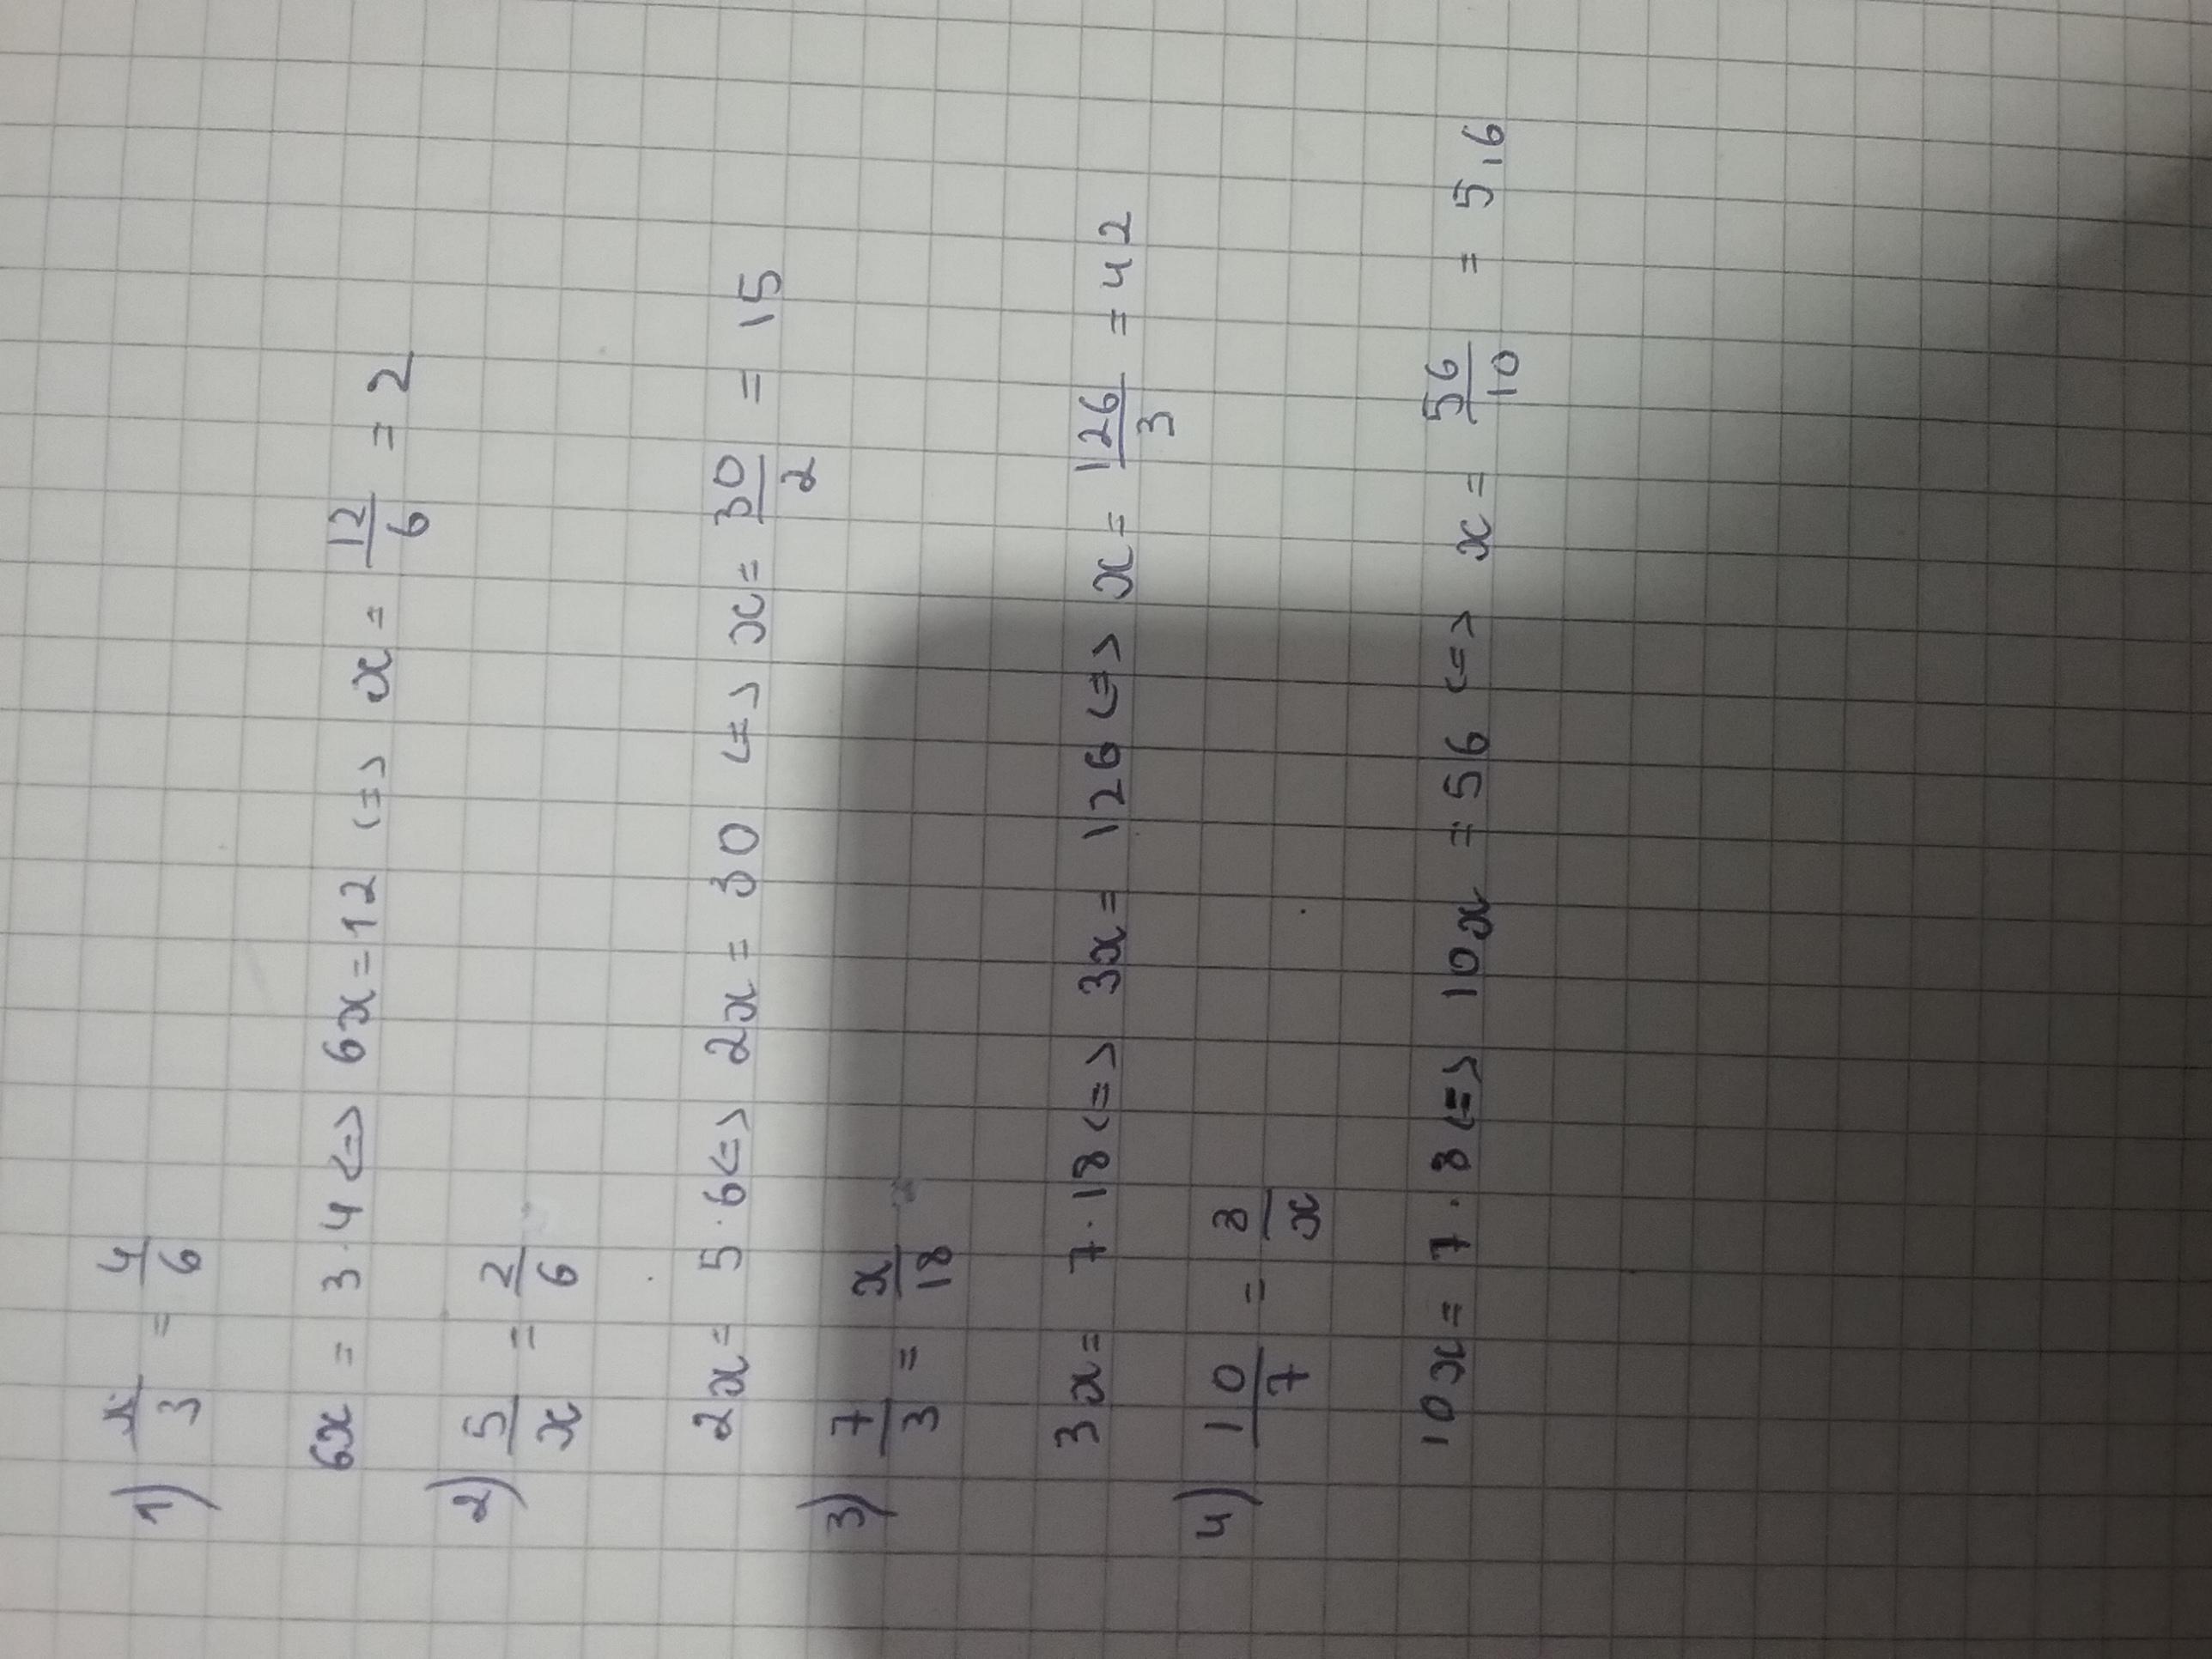 1) x/3 = 4/6
6x = 3·4 <=> 6x=12 <=> x = 12/6 = 2
2) 5/x = 2/6
2x = 5·6 <=> 2x = 30 <=> x = 30/2 = 15
3) 7/3 = x/18
3x = 7·18 <=> 3x = 126 <=> x = 126/3 = 42
4) 10/7 = 8/x
10x = 7·8 <=> 10x = 56 <=> x = 56/10 = 5,6